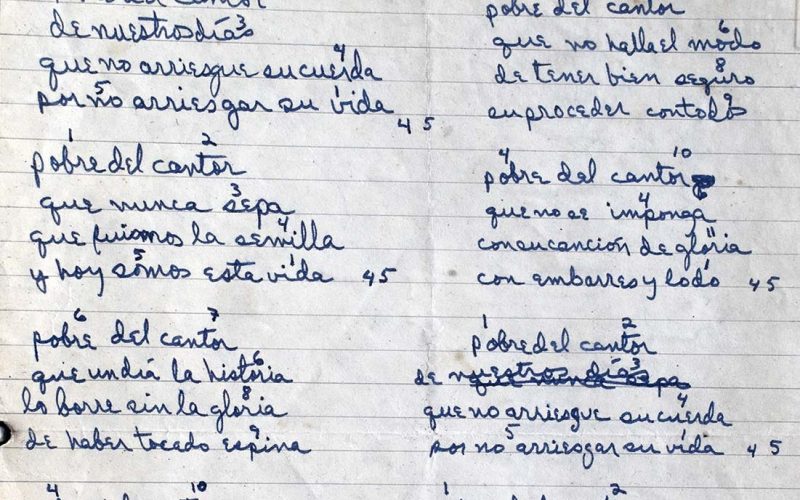 cantor
3
de nuestros días
4
que no arriesgue su cuerda
5 1
por no arriesgar su vida 4 5
1 2
pobre del cantor
3
que nunca sepa
4
que fuimos la semilla
5 1
y hoy somos esta vida 4 5
6 7
pobre del cantor
6
que un diá la historia
8
lo borre sin la gloria
9
de haber tocado espina
4 10
pobre del cantor
6
que no halla el modo
8
de tener bien seguro
9
su proceder con todos
4 10
pobre del cantor
4
que no se imponga
11
con su canción de gloria
1
con embarres y lodo 4 5
1 2
pobre del cantor
3
de nuestros días
4
que no arriesgue su cuerda
5 1
por no arriesgar su vida 4 5
1 2